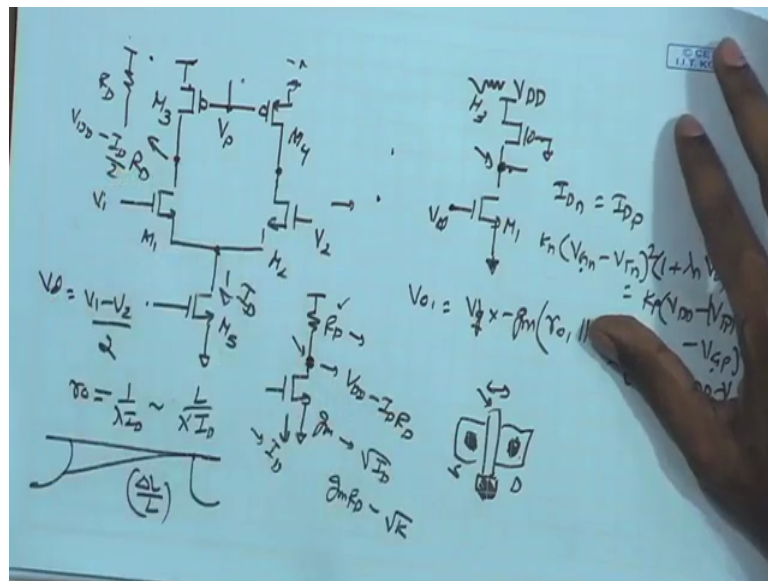 © CE
I.I.T. KG
R_D
M_3
V_P
M_4
V_DD - I_D/2 R_D
V_1
M_1
M_2
V_2
V_d = (V_1 - V_2)/2
I_D
M_5
r_o = 1/(λI_D) ~ L/(λ'I_D)
(ΔL/L)
R_D →
→ V_DD - I_D R_D
→ I_D
g_m → √I_D
g_m R_D - √K
V_DD
M_3
M_1
I_Dn = I_Dp
K_n(V_Gn - V_Tn)²(1 + λ_n V
= K_P(V_DD - |V_TP|
- V_GP)
V_o1 = × - g_m(r_o1 ||
S
D